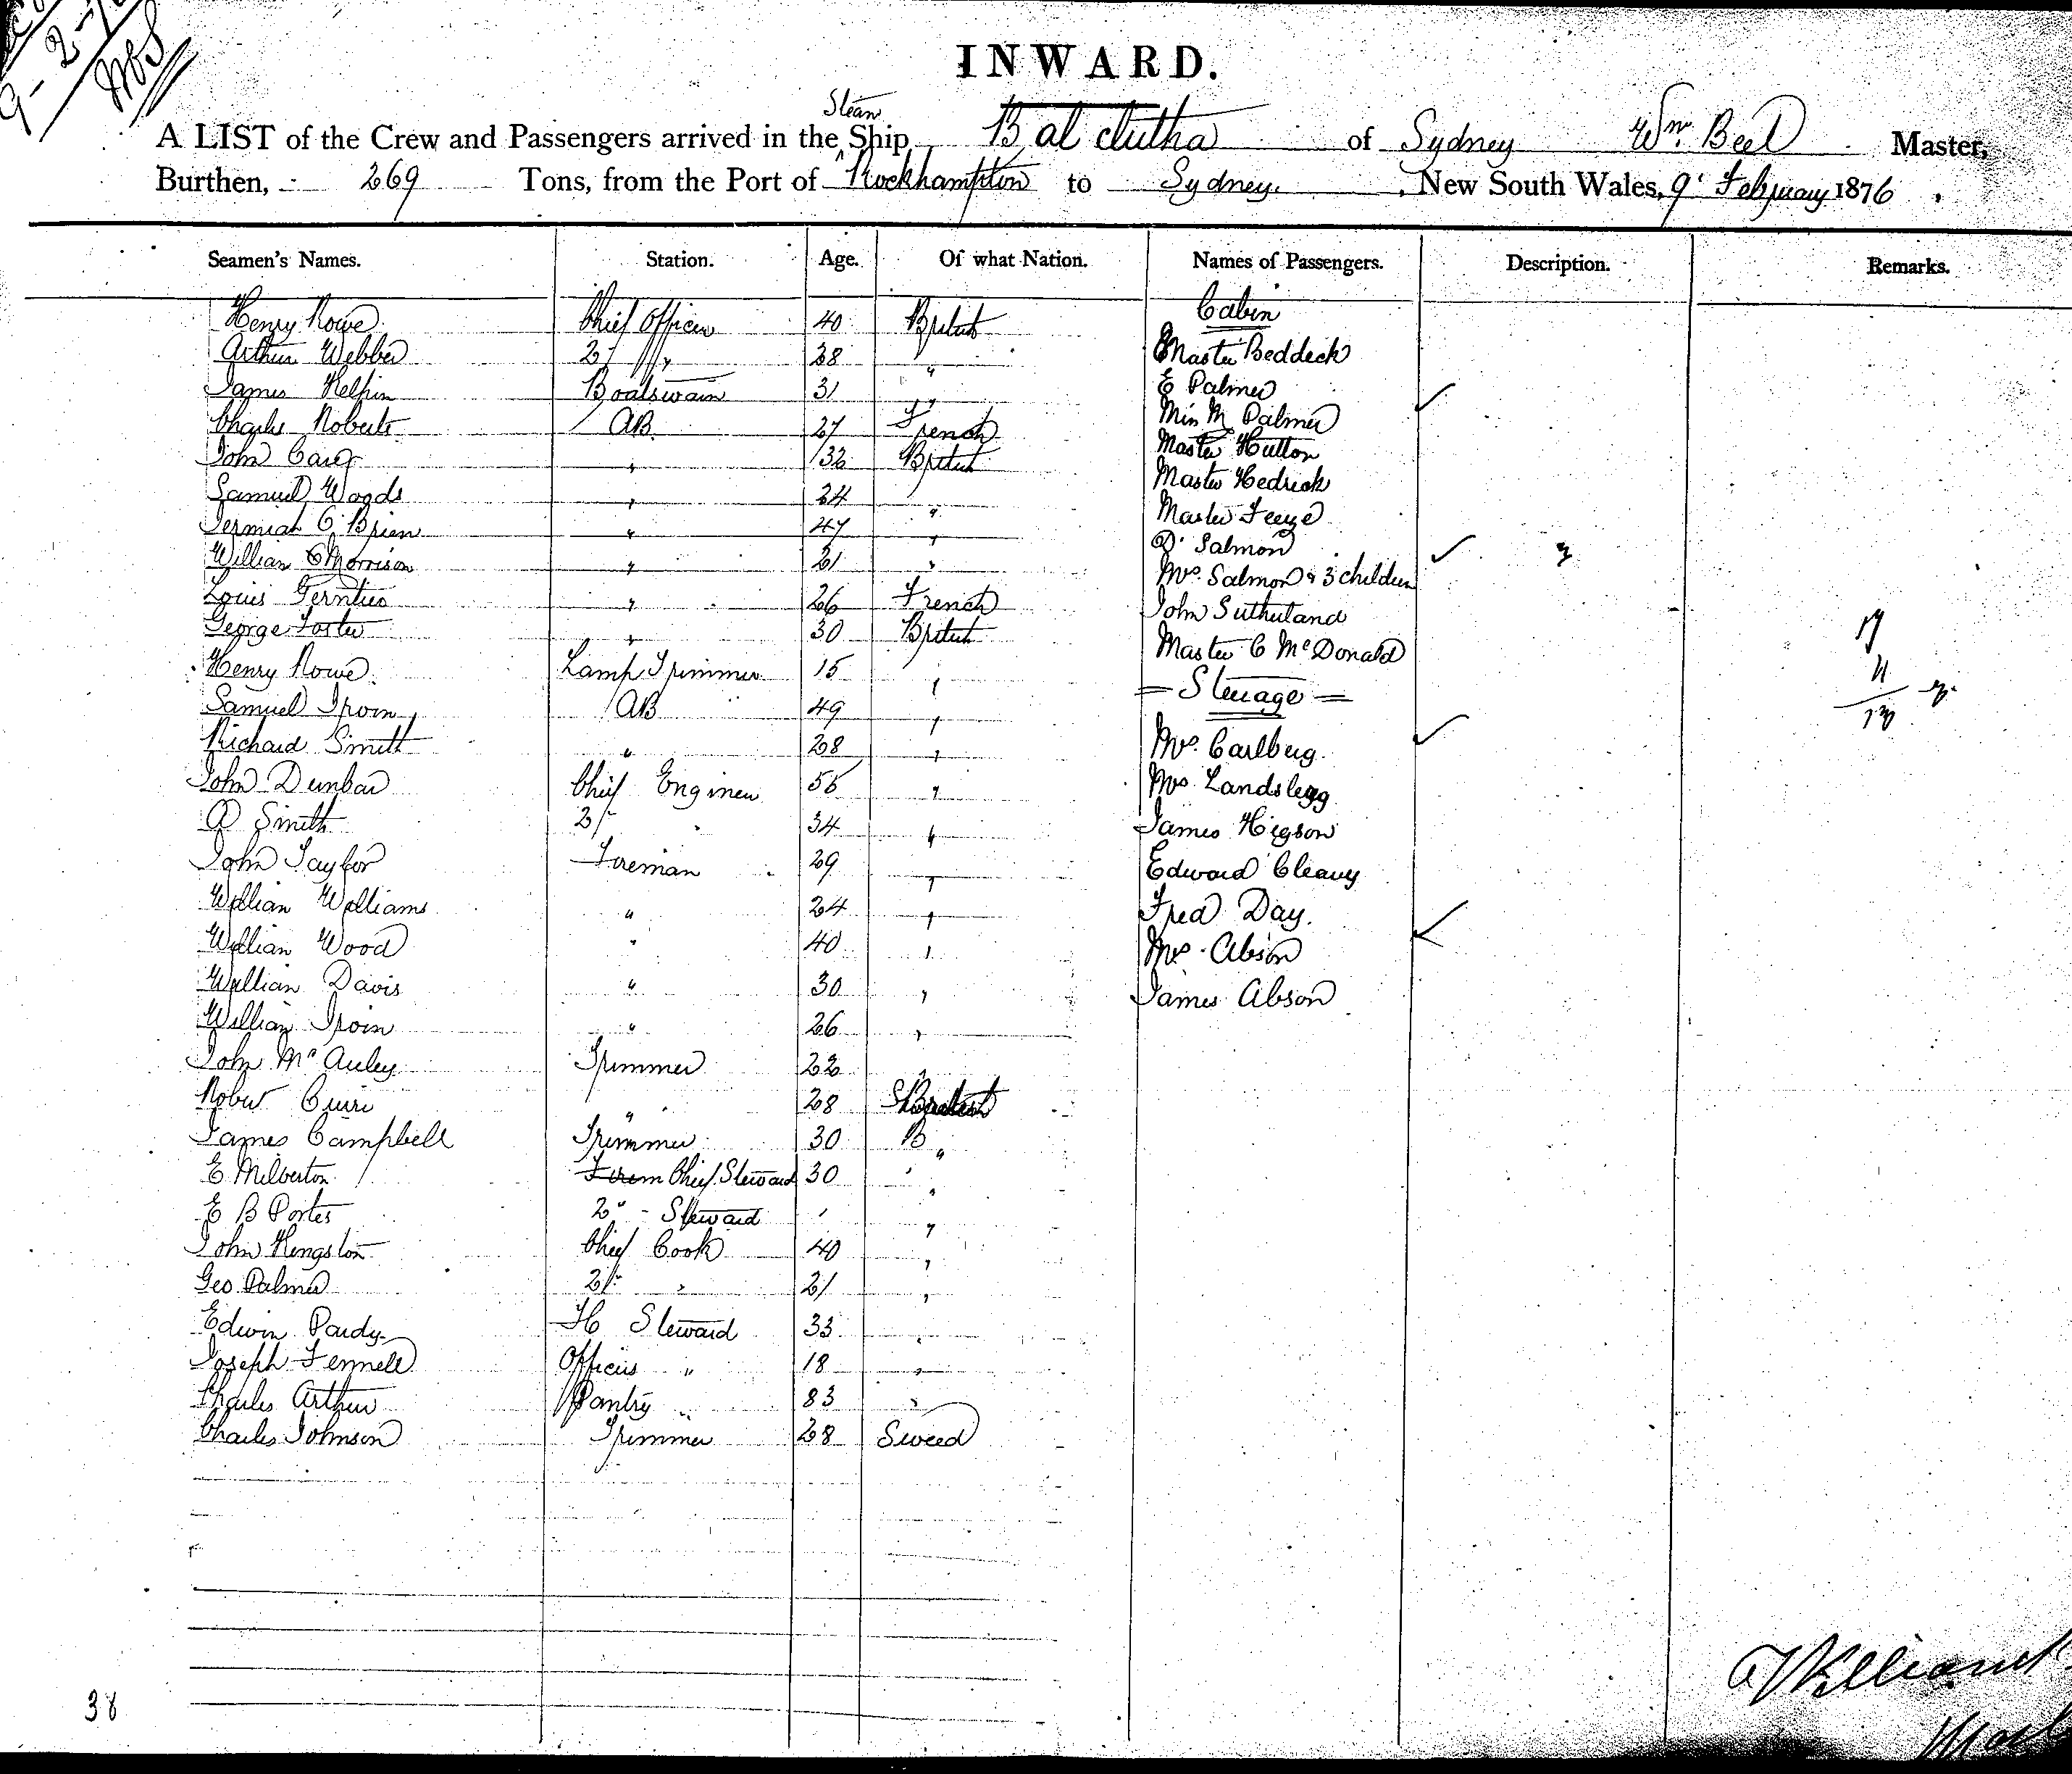 9-2-
INWARD.
Steam
A LIST of the Crew and Passengers arrived in the Ship Balclutha of Sydney Wm. Beel Master,
Burthen, 269 Tons, from the Port of Rockhampton to Sydney. New South Wales, 9 February 1876.
Seamen's Names. Station. Age. Of what Nation. Names of Passengers. Description. Remarks.
Henry Rowe Chief Officer 40 British Cabin
Arthur Webber 2/ " 28 " Master Beddeck
James Boatswain 31 " E Palmer
Charles Roberts AB 27 French Miss M Palmer
John " 32 British Master Hutton
Samuel Woods " 24 " Master Hedrick
Jermiah O'Brien " 47 " Master
William Morrison " 21 " Dr Salmon
Louis " 26 French Mrs. Salmon & 3 children
George Foster " 30 British John Sutherland
Henry Rowe Lamp Trimmer 15 " Master C McDonald
Samuel Irvin AB 49 " Steerage
Richard Smith " 28 " Mrs. Carlberg
John Dunbar Chief Engineer 55 " Mrs
A Smith 2/ " 34 " James Higson
John Taylor Fireman 29 " Edward Cleavy
William Williams " 24 " Fred Day.
William Wood " 40 " Mrs. Abson
William Davis " 30 " James Abson
William Irvin " 26 "
John McAuley Trimmer 22 "
Robert " 28
James Campbell Trimmer 30 B "
E Milberton Firem Chief Steward 30 "
E B Porter 2d - Steward " "
John Kingston Chief Cook 40 "
Geo Palmer 2/ " 21 "
Edwin Pardy Steward 33 "
Joseph Fennell Officers " 18 "
Charles Arthur Pantry " 83 "
Charles Johnson Trimmer 28 Sweed
38